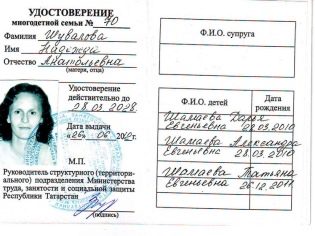 УДОСТОВЕРЕНИЕ
многодетной семьи № 70
Фамилия Шувалова
Имя Надежда
Отчество Анатольевна
(матери, отца)
Удостоверение
действительно до
28.03.2028.
Дата выдачи
«26» 06
М.П.
Руководитель структурного (территори-
ального) подразделения Министерства
труда, занятости и социальной защиты
Республики Татарстан
(подпись)
Ф.И.О. супруга
Ф.И.О. детей
Дата
рождения
Шамаева Дарья
Евгеньевна 28.03.2010
Шамаева Александра
Евгеньевна 28.03.2010
Шамаева Татьяна
Евгеньевна 26.12.